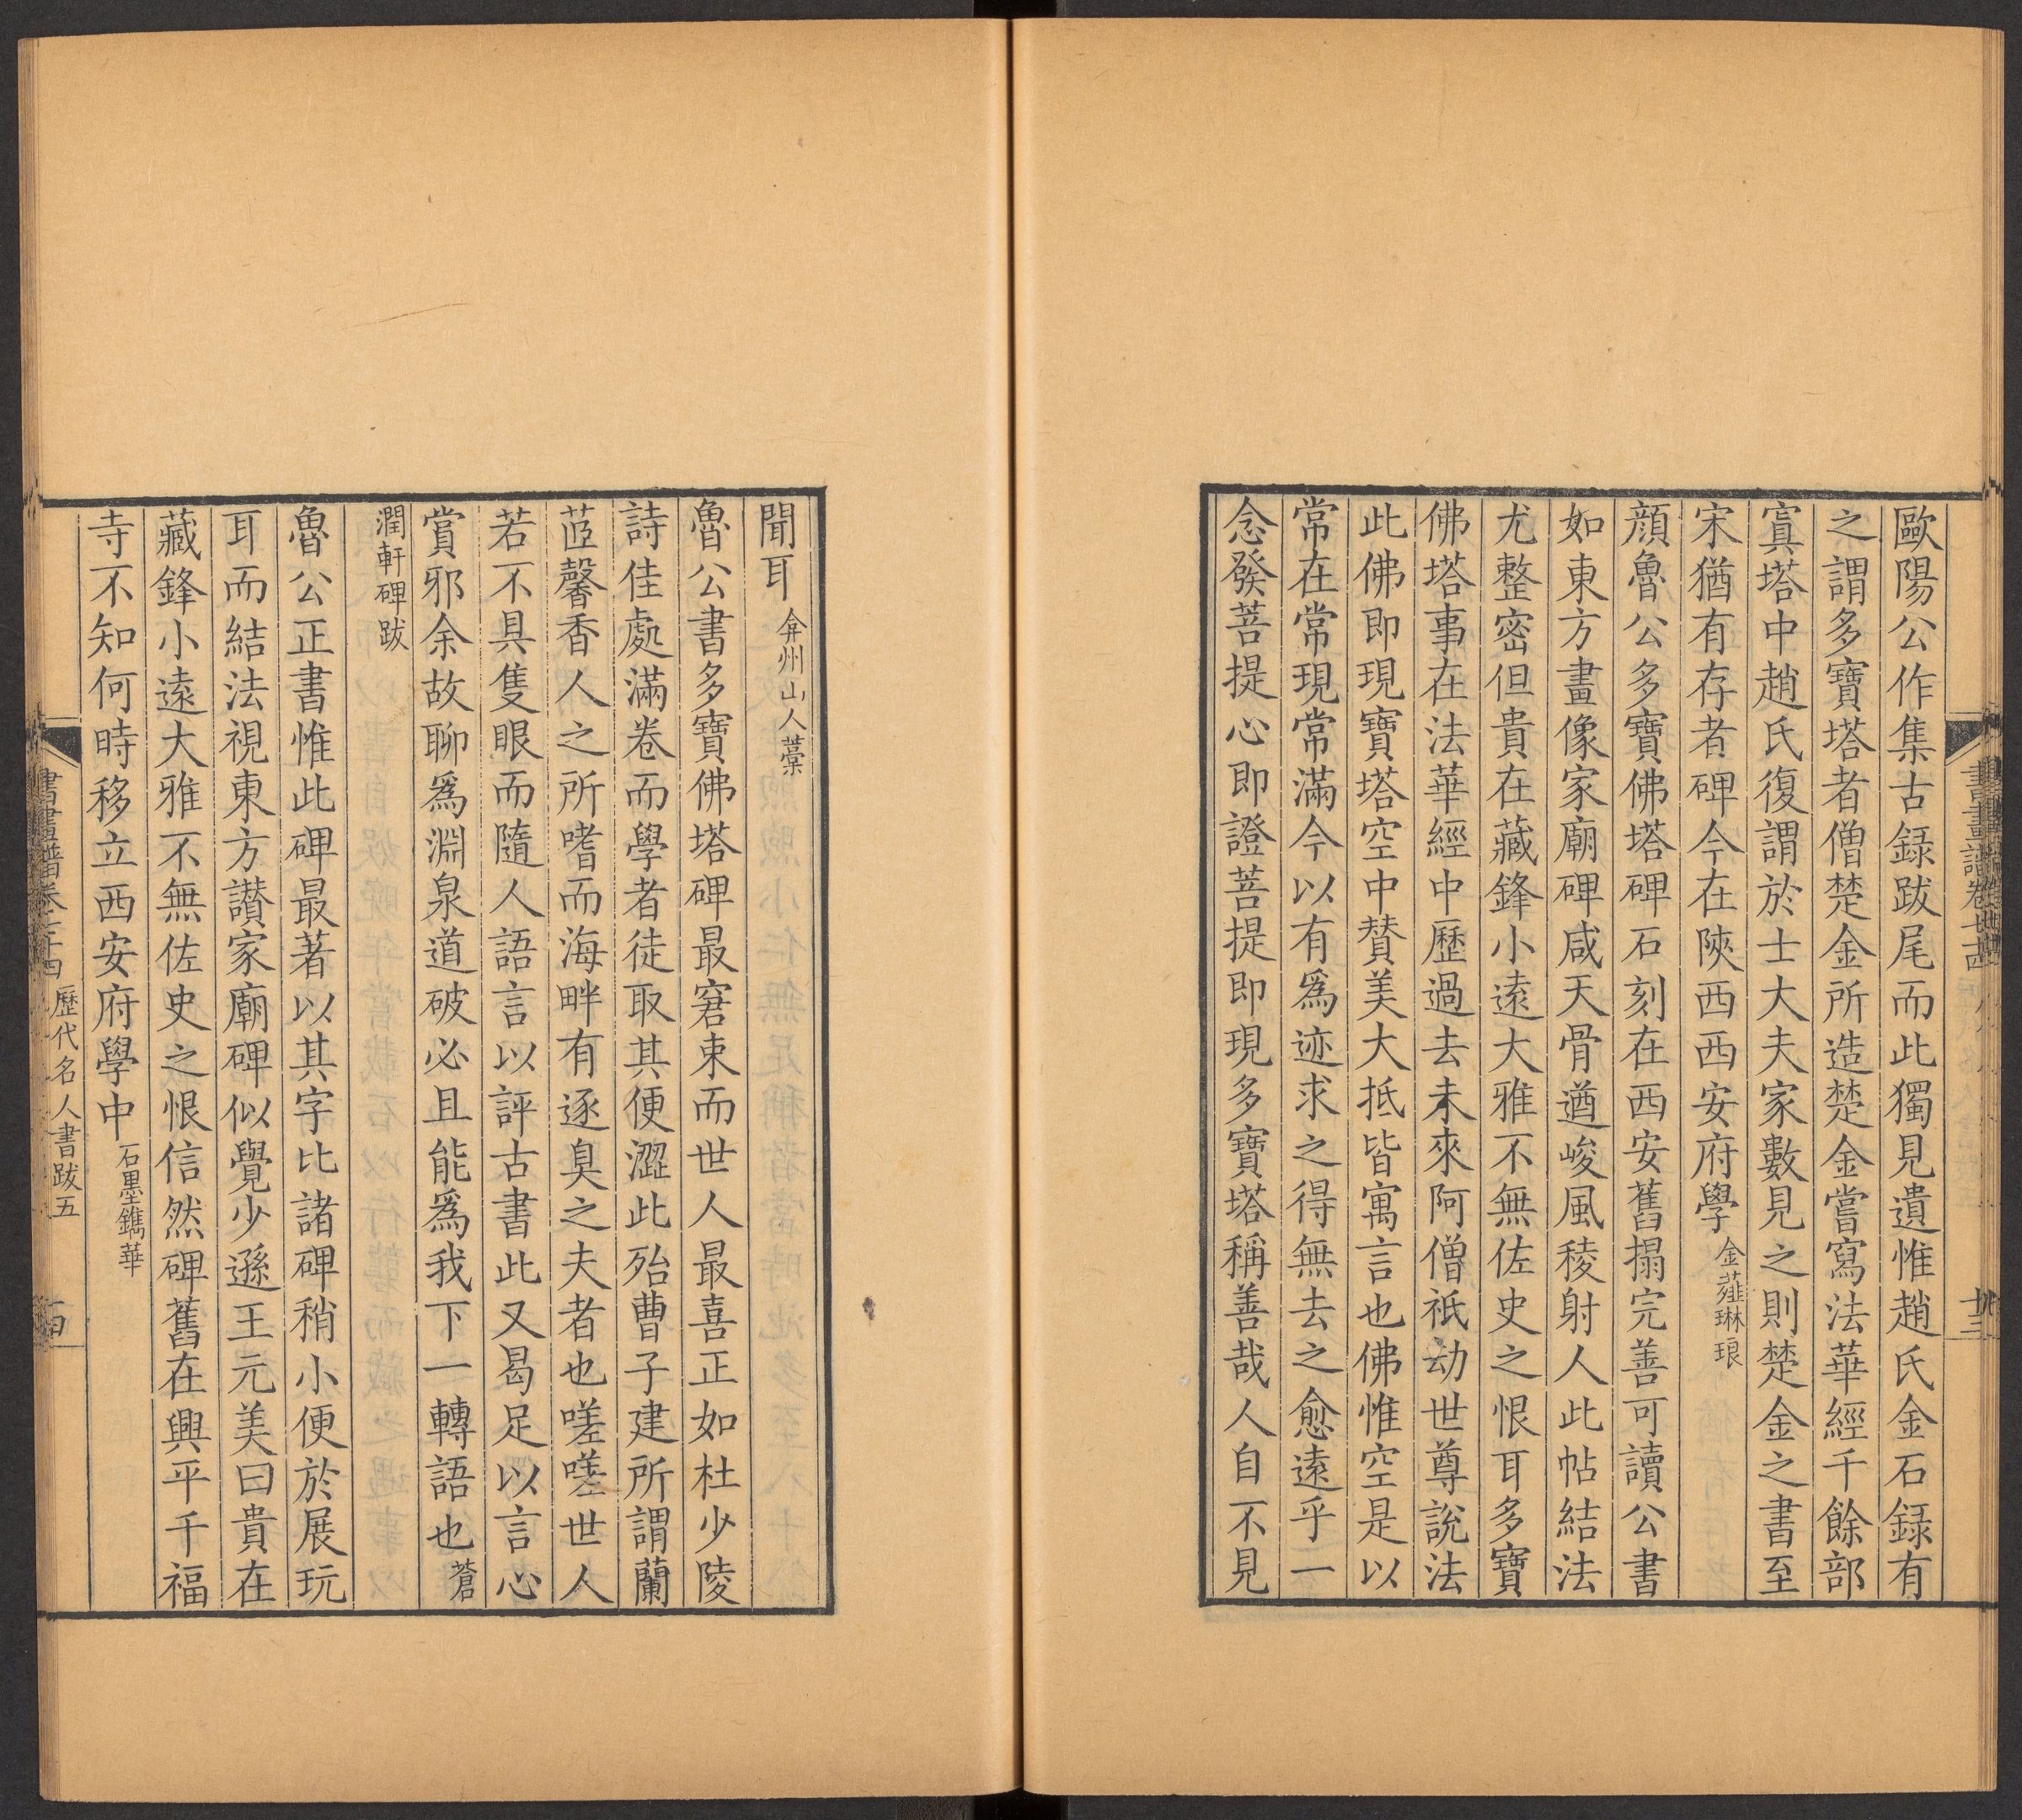 歐陽公作集古録跋尾而此獨見遺惟趙氏金石録有
之謂多寶塔者僧楚金所造楚金嘗寫法華經千餘部
寘塔中趙氏復謂於士大夫家數見之則楚金之書至
宋猶有存者碑今在陝西西安府學金薤琳琅
顔魯公多寶佛塔碑石刻在西安舊搨完善可讀公書
如東方畫像家廟碑咸天骨遒峻風稜射人此帖結法
尤整密但貴在藏鋒小遠大雅不無佐史之恨耳多寶
佛塔事在法華經中歷過去未來阿僧祇劫世尊說法
此佛即現寶塔空中賛美大抵皆寓言也佛惟空是以
常在常現常滿今以有爲迹求之得無去之愈遠乎一
念發菩提心即證菩提即現多寶塔稱善哉人自不見
聞耳弇州山人藁
魯公書多寶佛塔碑最窘束而世人最喜正如杜少陵
詩佳處滿卷而學者徒取其便澀此殆曹子建所謂蘭
茝馨香人之所嗜而海畔有逐臭之夫者也嗟嗟世人
若不具隻眼而隨人語言以評古書此又曷足以言心
賞邪余故聊爲淵泉道破必且能爲我下一轉語也蒼
潤軒碑跋
魯公正書惟此碑最著以其字比諸碑稍小便於展玩
耳而結法視東方讃家廟碑似覺少遜王元美曰貴在
藏鋒小遠大雅不無佐史之恨信然碑舊在興平千福
寺不知何時移立西安府學中石墨鐫華
歷代名人書跋五